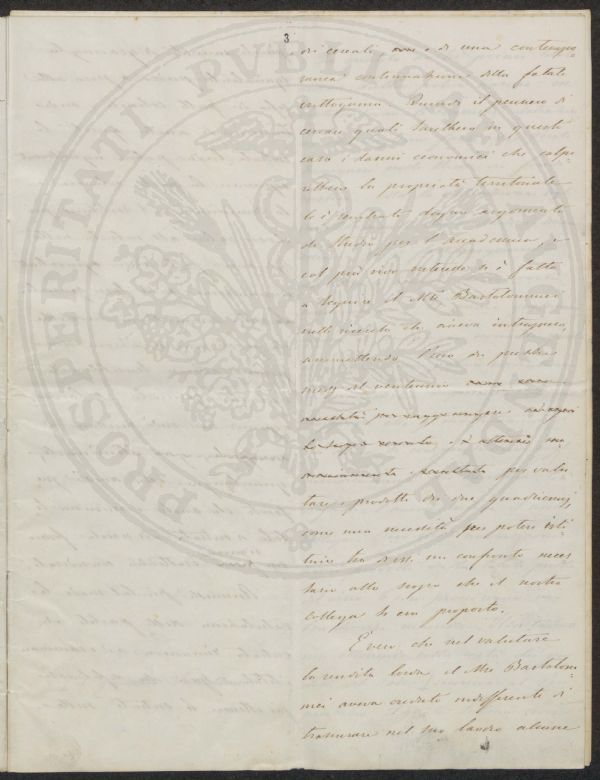 3
di cereali, e di una contempo-
ranea continuazione della fatale
crittogama. Quindi il pensiero di
cercare quali sarebbero in questo
caso i danni economici che colpi-
rebbero la proprietà territoriale
lo è sembrato degno argomento
di studio per l'Accademia, e
col più vivo interesse si è fatta
a seguire il Mse Bartolommei
nelle ricerche che aveva intraprese,
ammettendo
del ventennio
per valu-
tare i prodotti dei due quadriennj,
come una necessità per poter isti-
tuire tra di essi un confronto neces-
sario allo scopo che il nostro
collega si era proposto.
È vero che nel valutare
la rendita lorda il Mse Bartolom-
mei aveva creduto indifferente di
trascurare nel suo lavoro alcune
PROSPERITATI PUBLICAE AUGENDAE